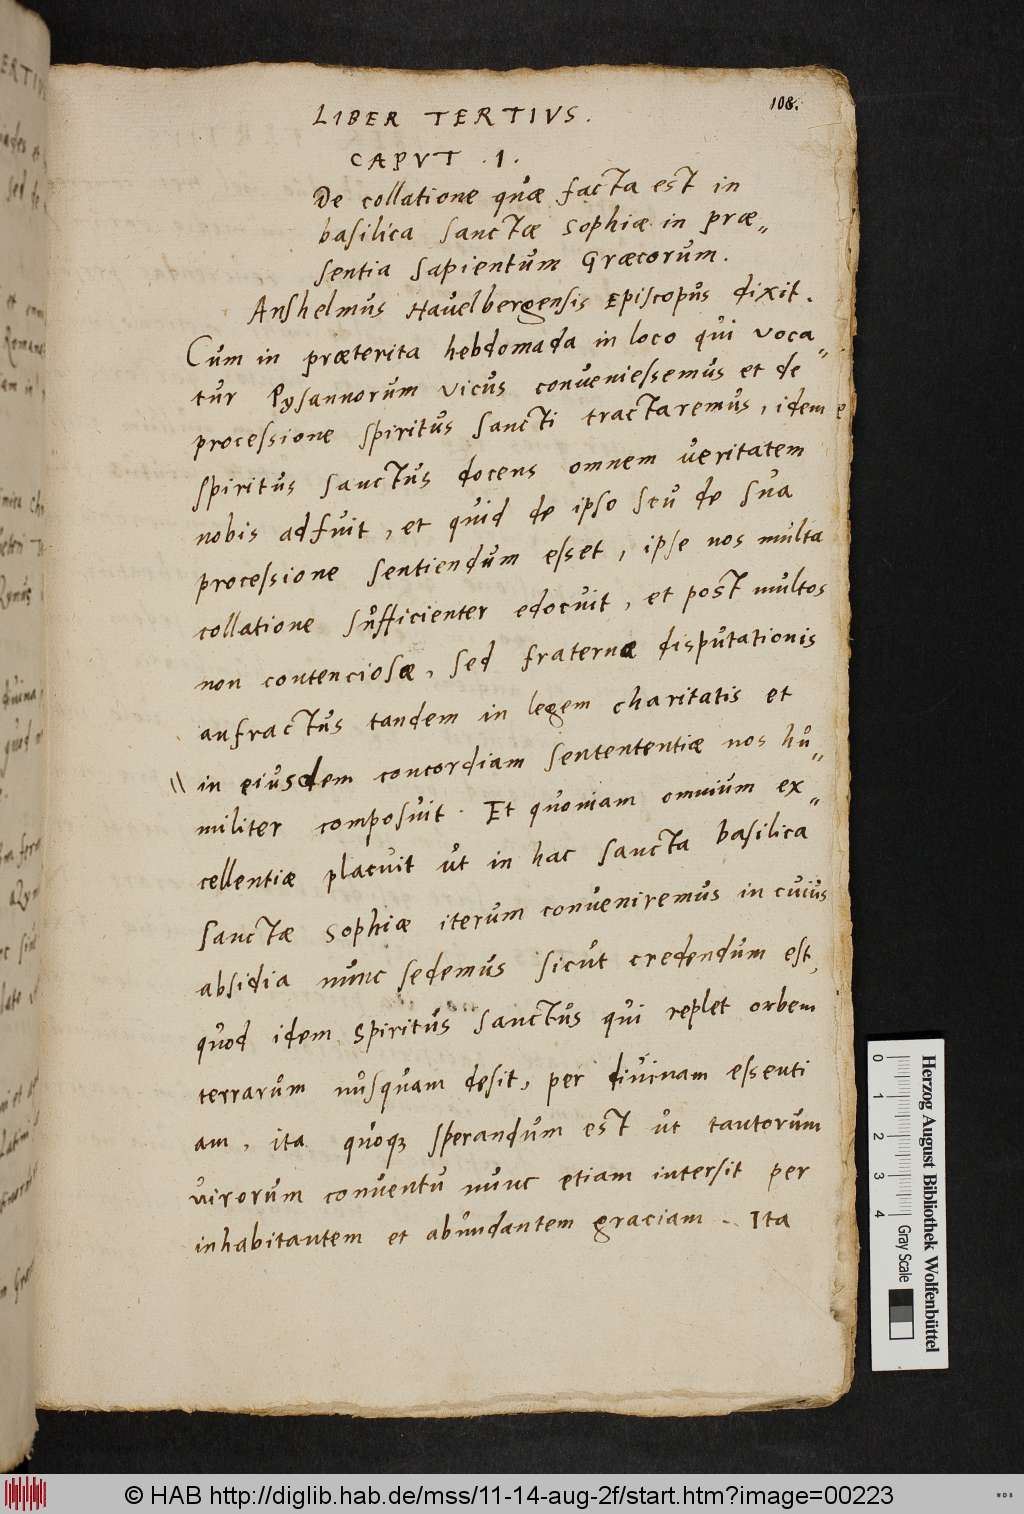 108.
LIBER TERTIVS.
CAPVT .I.
De collatione quæ facta est in
basilica sanctæ Sophiæ in præ„
sentia sapientum Græcorum.
Anshelmus Havelbergensis Episcopus dixit.
Cum in præterita hebdomada in loco qui voca„
tur Pysannorum vicus conveniessemus et de
processione spiritus sancti tractaremus, idem e
spiritus sanctus docens omnem veritatem
nobis adfuit, et quid de ipso seu de sua
processione sentiendum esset, ipse nos multa
collatione sufficienter edocuit, et post multos
non contenciosæ, sed fraternæ disputationis
anfractus tandem in legem charitatis et
\\ in eiusdem concordiam sentententiæ nos hu„
militer composuit. Et quoniam omnium ex„
cellentiæ placuit ut in hac sancta basilica
sanctæ Sophiæ iterum conveniremus in cuius
absidia nunc sedemus sicut credendum est,
quod idem Spiritus sanctus qui replet orbem
terrarum nusquam desit, per divinam essenti
am, ita quoqꝫ sperandum est ut tantorum
virorum conventu nunc etiam intersit per
inhabitantem et abundantem graciam. Ita
Herzog August Bibliothek Wolfenbüttel
0 1 2 3 4
Gray Scale
© HAB http://diglib.hab.de/mss/11-14-aug-2f/start.htm?image=00223